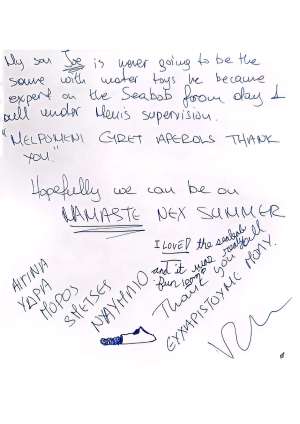 My son Joe is never going to be the
same with water toys he became
expert on the Seabob from day 1
all under Menis supervision.
"MELPOMENI GRET APEROLS THANK
YOU"
Hopefully we can be on
NAMASTE NEX SUMMER
I LOVED the seabob
and it was really
fun
Thank you all
ΕΥΧΑΡΙΣΤΟΥΜΕ ΠΟΛΥ.
ΑΙΓΙΝΑ
ΥΔΡΑ
ΠΟΡΟΣ
SPETSES